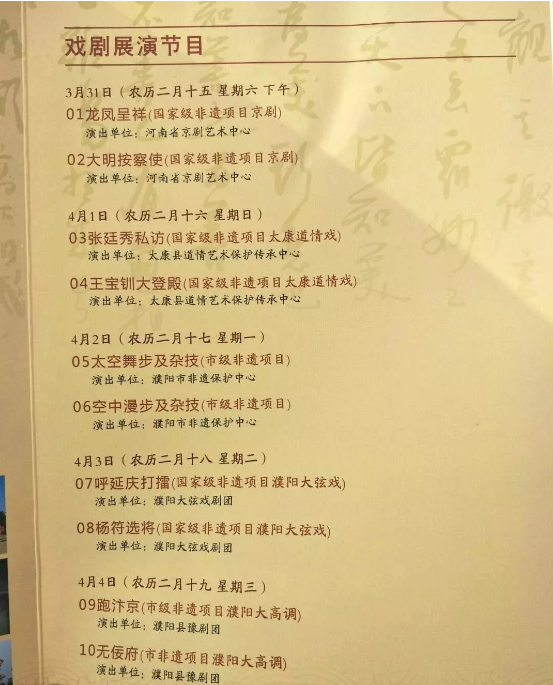 戏剧展演节目
3月31日（农历二月十五 星期六 下午）
01龙凤呈祥(国家级非遗项目京剧)
演出单位：河南省京剧艺术中心
02大明按察使(国家级非遗项目京剧)
演出单位：河南省京剧艺术中心
4月1日（农历二月十六 星期日）
03张廷秀私访(国家级非遗项目太康道情戏)
演出单位：太康县道情艺术保护传承中心
04王宝钏大登殿(国家级非遗项目太康道情戏)
演出单位：太康县道情艺术保护传承中心
4月2日（农历二月十七 星期一）
05太空舞步及杂技(市级非遗项目)
演出单位：濮阳市非遗保护中心
06空中漫步及杂技(市级非遗项目)
演出单位：濮阳市非遗保护中心
4月3日（农历二月十八 星期二）
07呼延庆打擂(国家级非遗项目濮阳大弦戏)
演出单位：濮阳大弦戏剧团
08杨符选将(国家级非遗项目濮阳大弦戏)
演出单位：濮阳大弦戏剧团
4月4日（农历二月十九 星期三）
09跑汴京(市级非遗项目濮阳大高调)
演出单位：濮阳县豫剧团
10无佞府(市非遗项目濮阳大高调)
演出单位：濮阳县豫剧团